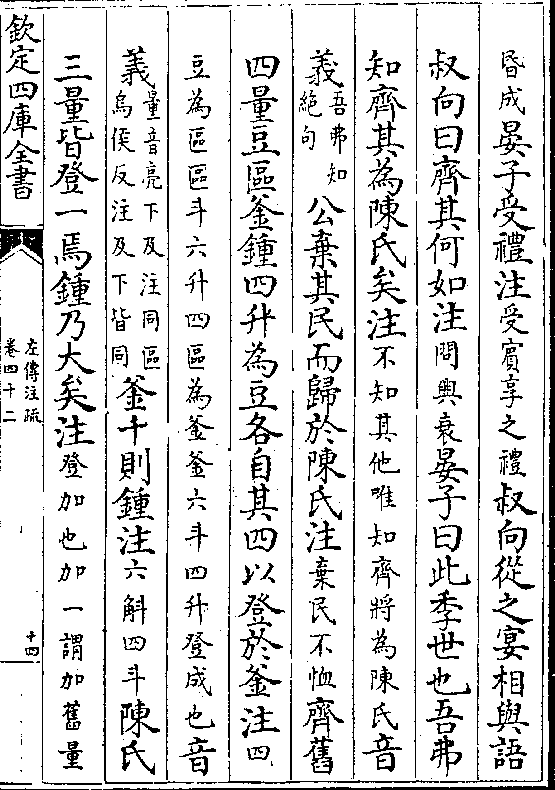 昬成晏子受禮注受賓享之禮叔向從之宴相與語
叔向曰齊其何如注問興衰晏子曰此季世也吾弗
知齊其為陳氏矣注不知其他唯知齊將為陳氏音
義吾弗知絶句公棄其民而歸於陳氏注棄民不恤齊舊
四量豆區釜鍾四升為豆各自其四以登於釜注四
豆為區區斗六升四區為釜釜六斗四升登成也音
義量音亮下及注同區烏侯反注及下皆同釜十則鍾注六斛四斗陳氏
三量皆登一焉鍾乃大矣注登加也加一謂加舊量
欽定四庫全書
左傳注疏
卷四十二
十四